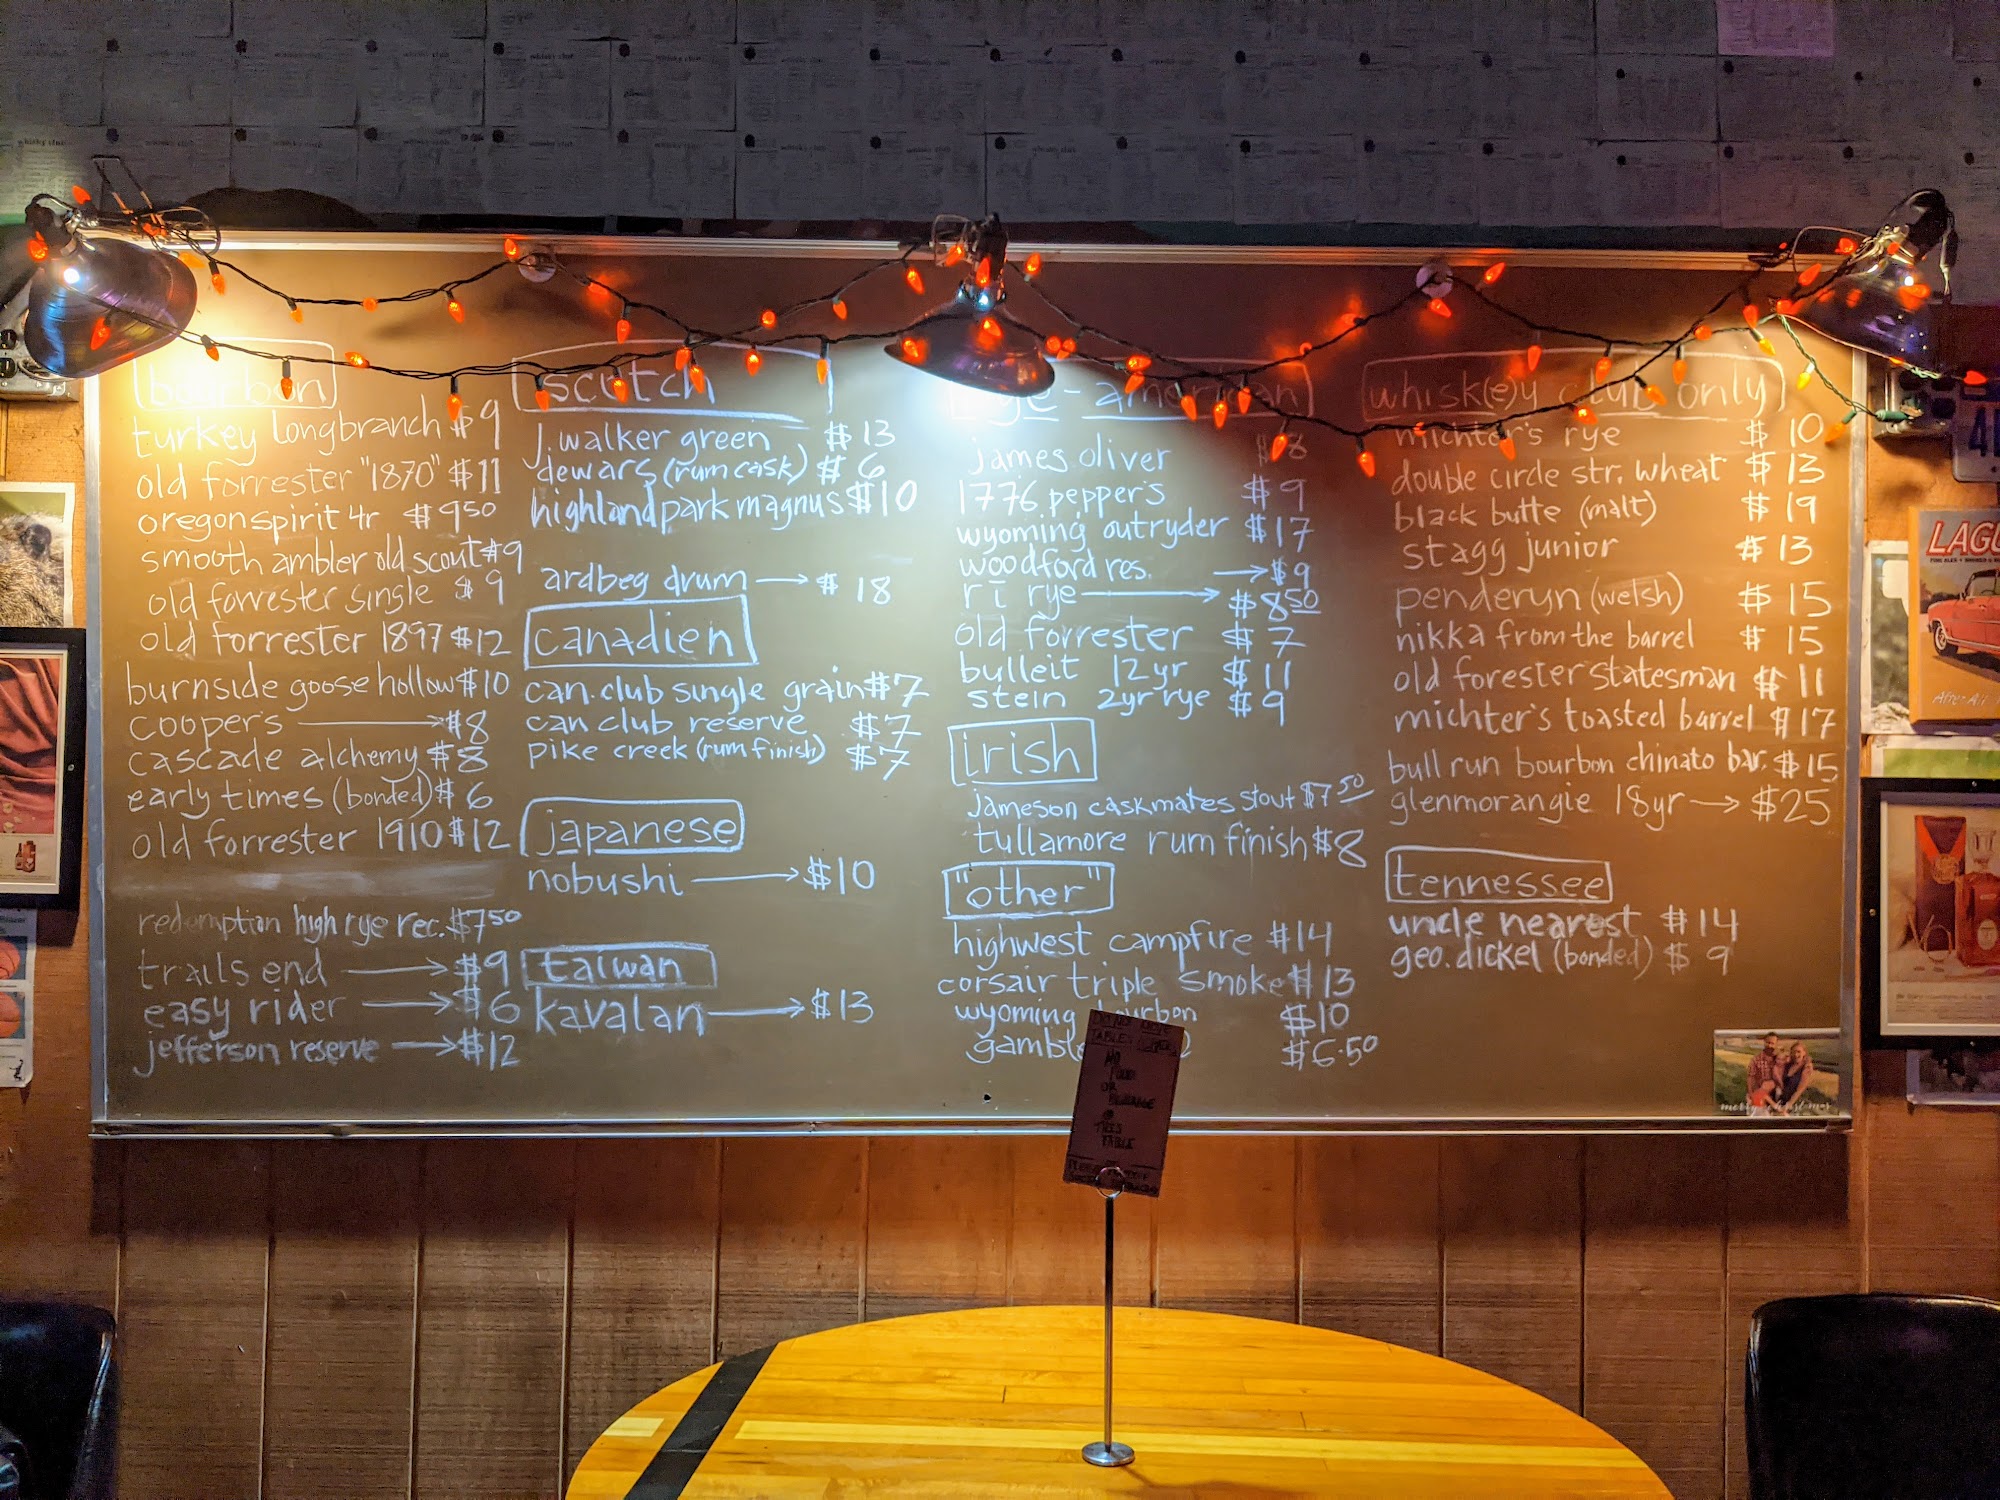 bourbon
turkey longbranch $9
old forrester "1870" $11
oregon spirit 4r $9 50
smooth ambler old scout $9
old forrester single $9
old forrester 1897 $12
burnside goose hollow $10
coopers → $8
cascade alchemy $8
early times (bonded) $6
old forrester 1910 $12
redemption high rye rec. $7 50
trails end → $9
easy rider → $6
jefferson reserve → $12
scotch
j. walker green $13
dewars (rum cask) $6
highland park magnus $10
ardbeg drum → $18
canadien
can. club single grain $7
can club reserve $7
pike creek (rum finish) $7
japanese
nobushi → $10
taiwan
kavalan → $13
rye - american
james oliver $8
1776 pepper's $9
wyoming outryder $17
woodford res. → $9
rī rye → $8 50
old forrester $7
bulleit 12yr $11
stein 2yr rye $9
irish
jameson caskmates stout $7 50
tullamore rum finish $8
"other"
highwest campfire $14
corsair triple smoke $13
wyoming $10
$6.50
whisk(e)y club only
michter's rye $10
double circle str. wheat $13
black butte (malt) $19
stagg junior $13
penderyn (welsh) $15
nikka from the barrel $15
old forester statesman $11
michter's toasted barrel $17
bull run bourbon chinato bar. $15
glenmorangie 18yr → $25
tennessee
uncle nearest $14
geo. dickel (bonded) $9
merry christmas
NO
FOOD
OR
BEVERAGE
@
THIS
TABLE
LAGU
After All